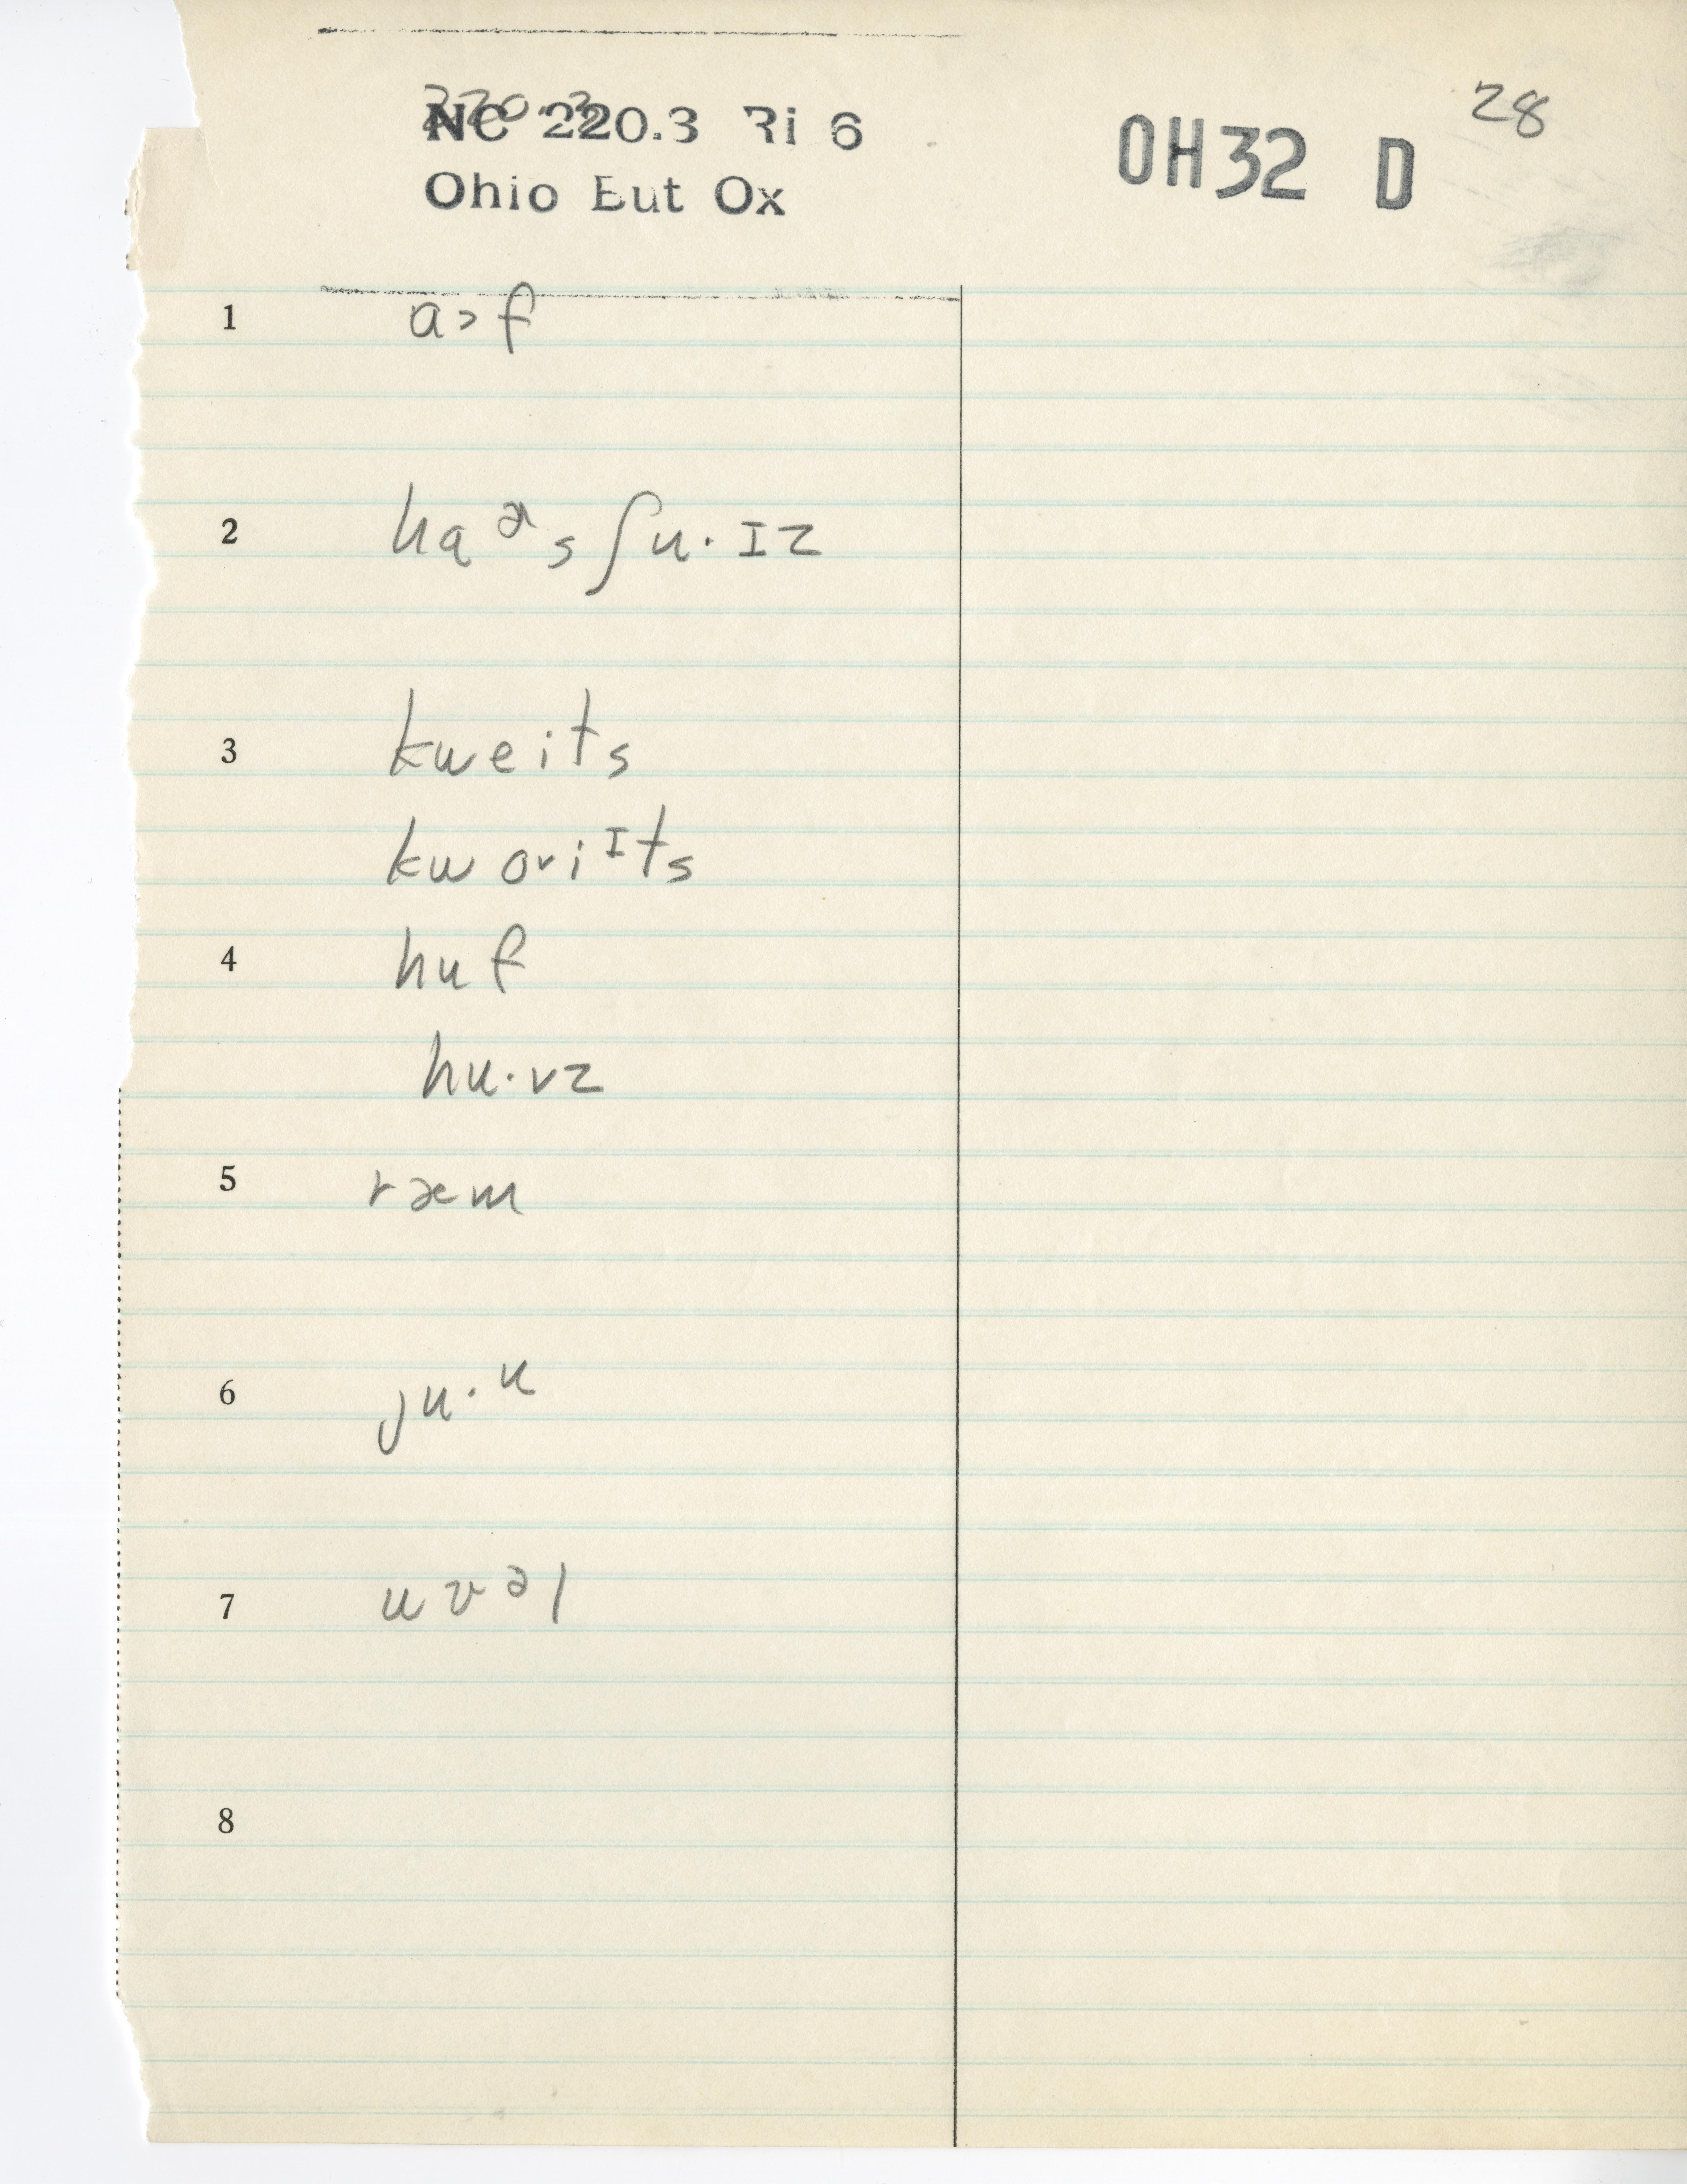 NC 220.3 Ri 6
28
OH32 D
Ohio Eut Ox
1 a > f
2 hɑᵊ˞s ʃu·ɪz
3 kweits
kworiᴵts
4 huf
hu·vz
5 ræm
6 ju·ᵘ
7 uvəl
8